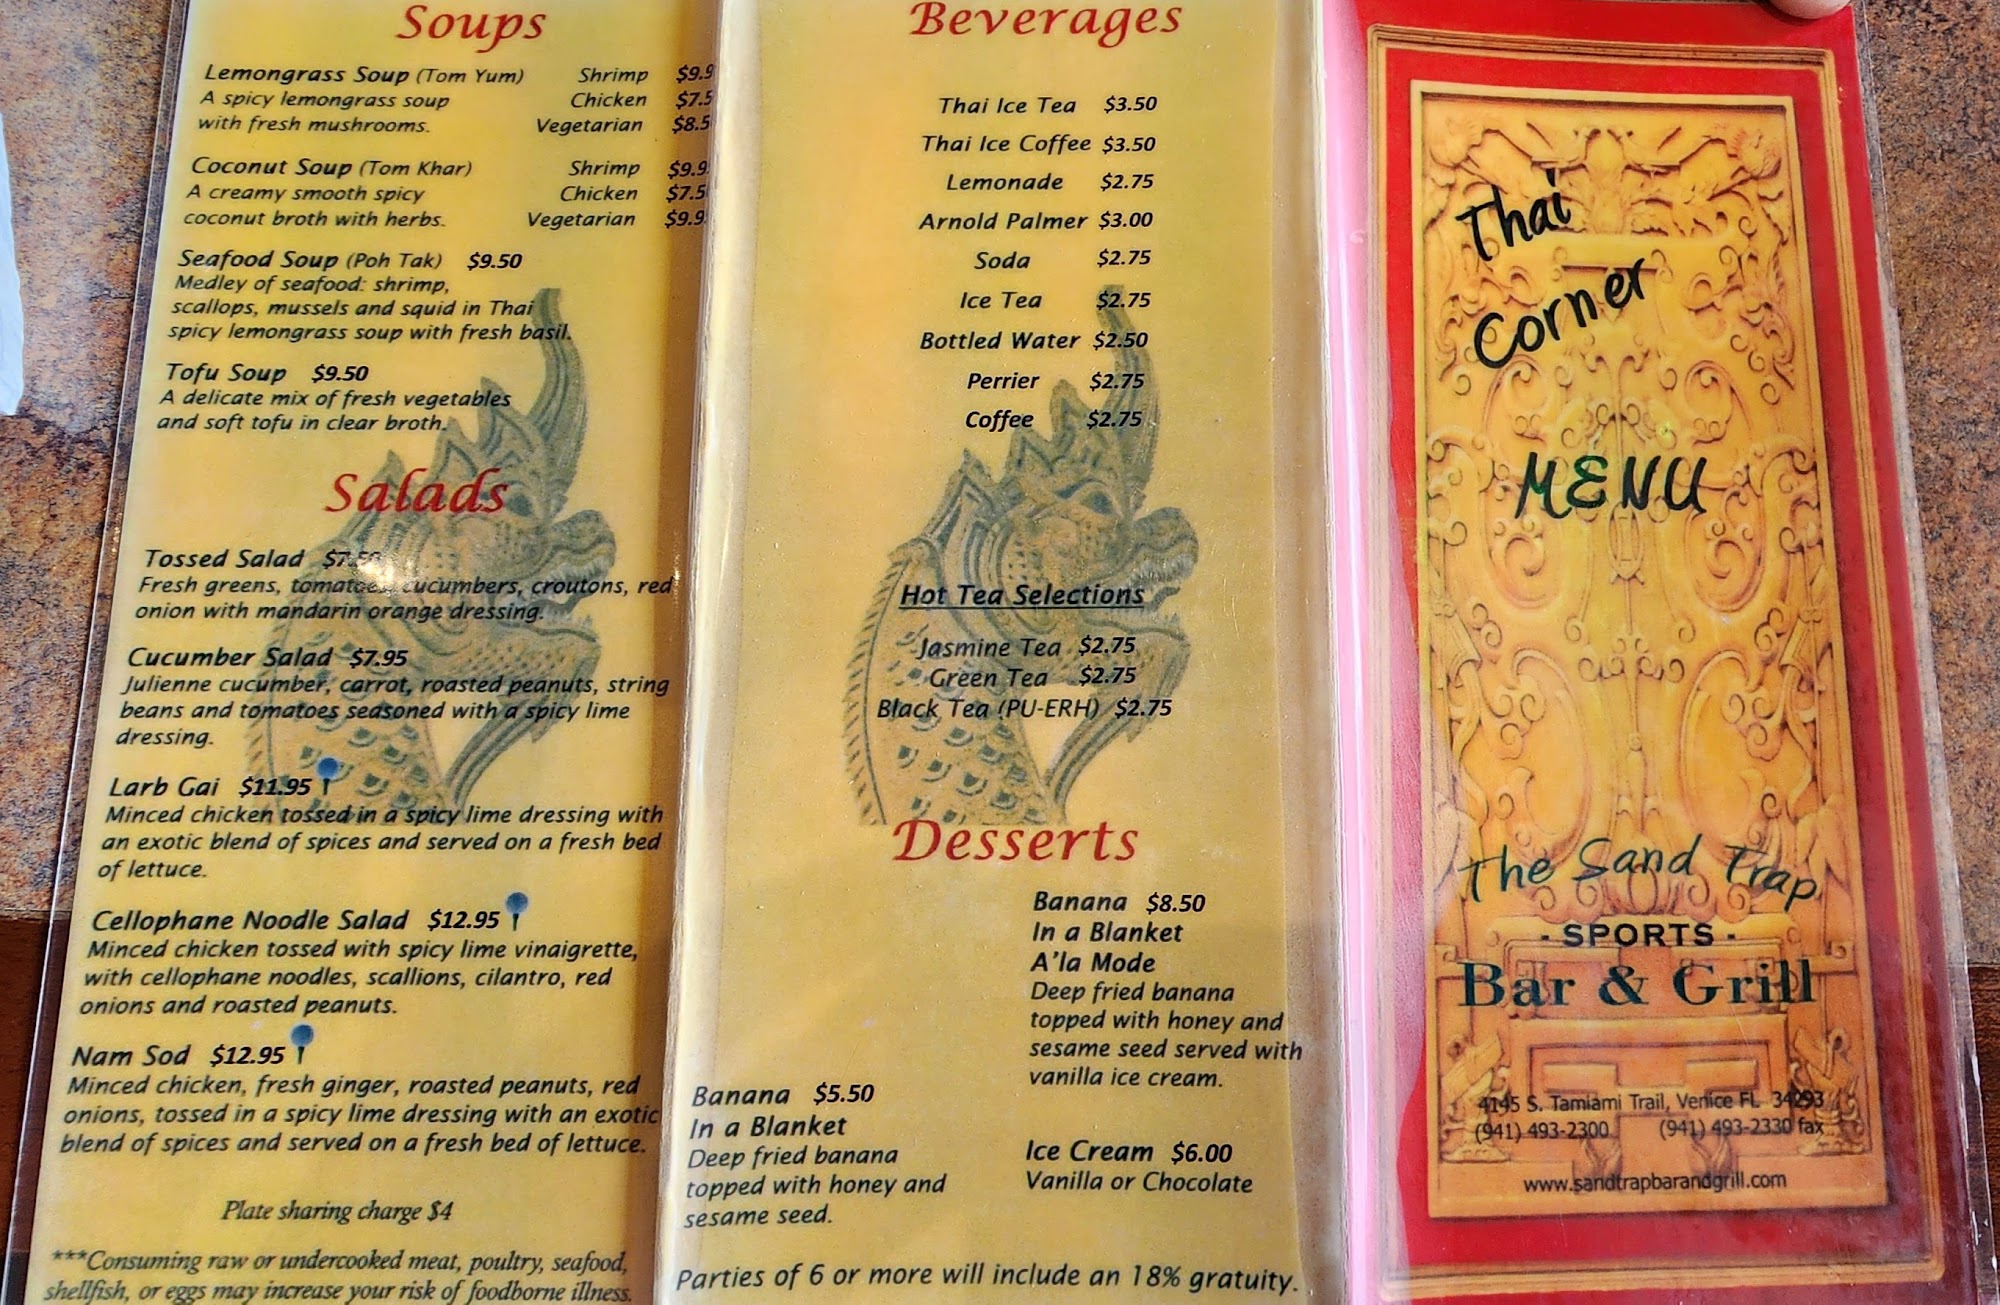 Soups
Lemongrass Soup (Tom Yum) Shrimp
A spicy lemongrass soup Chicken
with fresh mushrooms. Vegetarian
Coconut Soup (Tom Khar) Shrimp
A creamy smooth spicy Chicken
coconut broth with herbs. Vegetarian
Seafood Soup (Poh Tak) $9.50
Medley of seafood: shrimp,
scallops, mussels and squid in Thai
spicy lemongrass soup with fresh basil.
Tofu Soup $9.50
A delicate mix of fresh vegetables
and soft tofu in clear broth.
Salads
Tossed Salad $7.50
Fresh greens, tomatoes, cucumbers, croutons, red
onion with mandarin orange dressing.
Cucumber Salad $7.95
Julienne cucumber, carrot, roasted peanuts, string
beans and tomatoes seasoned with a spicy lime
dressing.
Larb Gai $11.95
Minced chicken tossed in a spicy lime dressing with
an exotic blend of spices and served on a fresh bed
of lettuce.
Cellophane Noodle Salad $12.95
Minced chicken tossed with spicy lime vinaigrette,
with cellophane noodles, scallions, cilantro, red
onions and roasted peanuts.
Nam Sod $12.95
Minced chicken, fresh ginger, roasted peanuts, red
onions, tossed in a spicy lime dressing with an exotic
blend of spices and served on a fresh bed of lettuce.
Plate sharing charge $4
***Consuming raw or undercooked meat, poultry, seafood,
shellfish, or eggs may increase your risk of foodborne illness.
Beverages
Thai Ice Tea $3.50
Thai Ice Coffee $3.50
Lemonade $2.75
Arnold Palmer $3.00
Soda $2.75
Ice Tea $2.75
Bottled Water $2.50
Perrier $2.75
Coffee $2.75
Hot Tea Selections
Jasmine Tea $2.75
Green Tea $2.75
Black Tea (PU-ERH) $2.75
Desserts
Banana $8.50
In a Blanket
A'la Mode
Deep fried banana
topped with honey and
sesame seed served with
vanilla ice cream.
Banana $5.50
In a Blanket
Deep fried banana
topped with honey and
sesame seed.
Ice Cream $6.00
Vanilla or Chocolate
Parties of 6 or more will include an 18% gratuity.
Thai
Corner
MENU
The Sand Trap
- SPORTS -
Bar & Grill
4145 S. Tamiami Trail, Venice FL 34293
(941) 493-2300 (941) 493-2330 fax
www.sandtrapbarandgrill.com